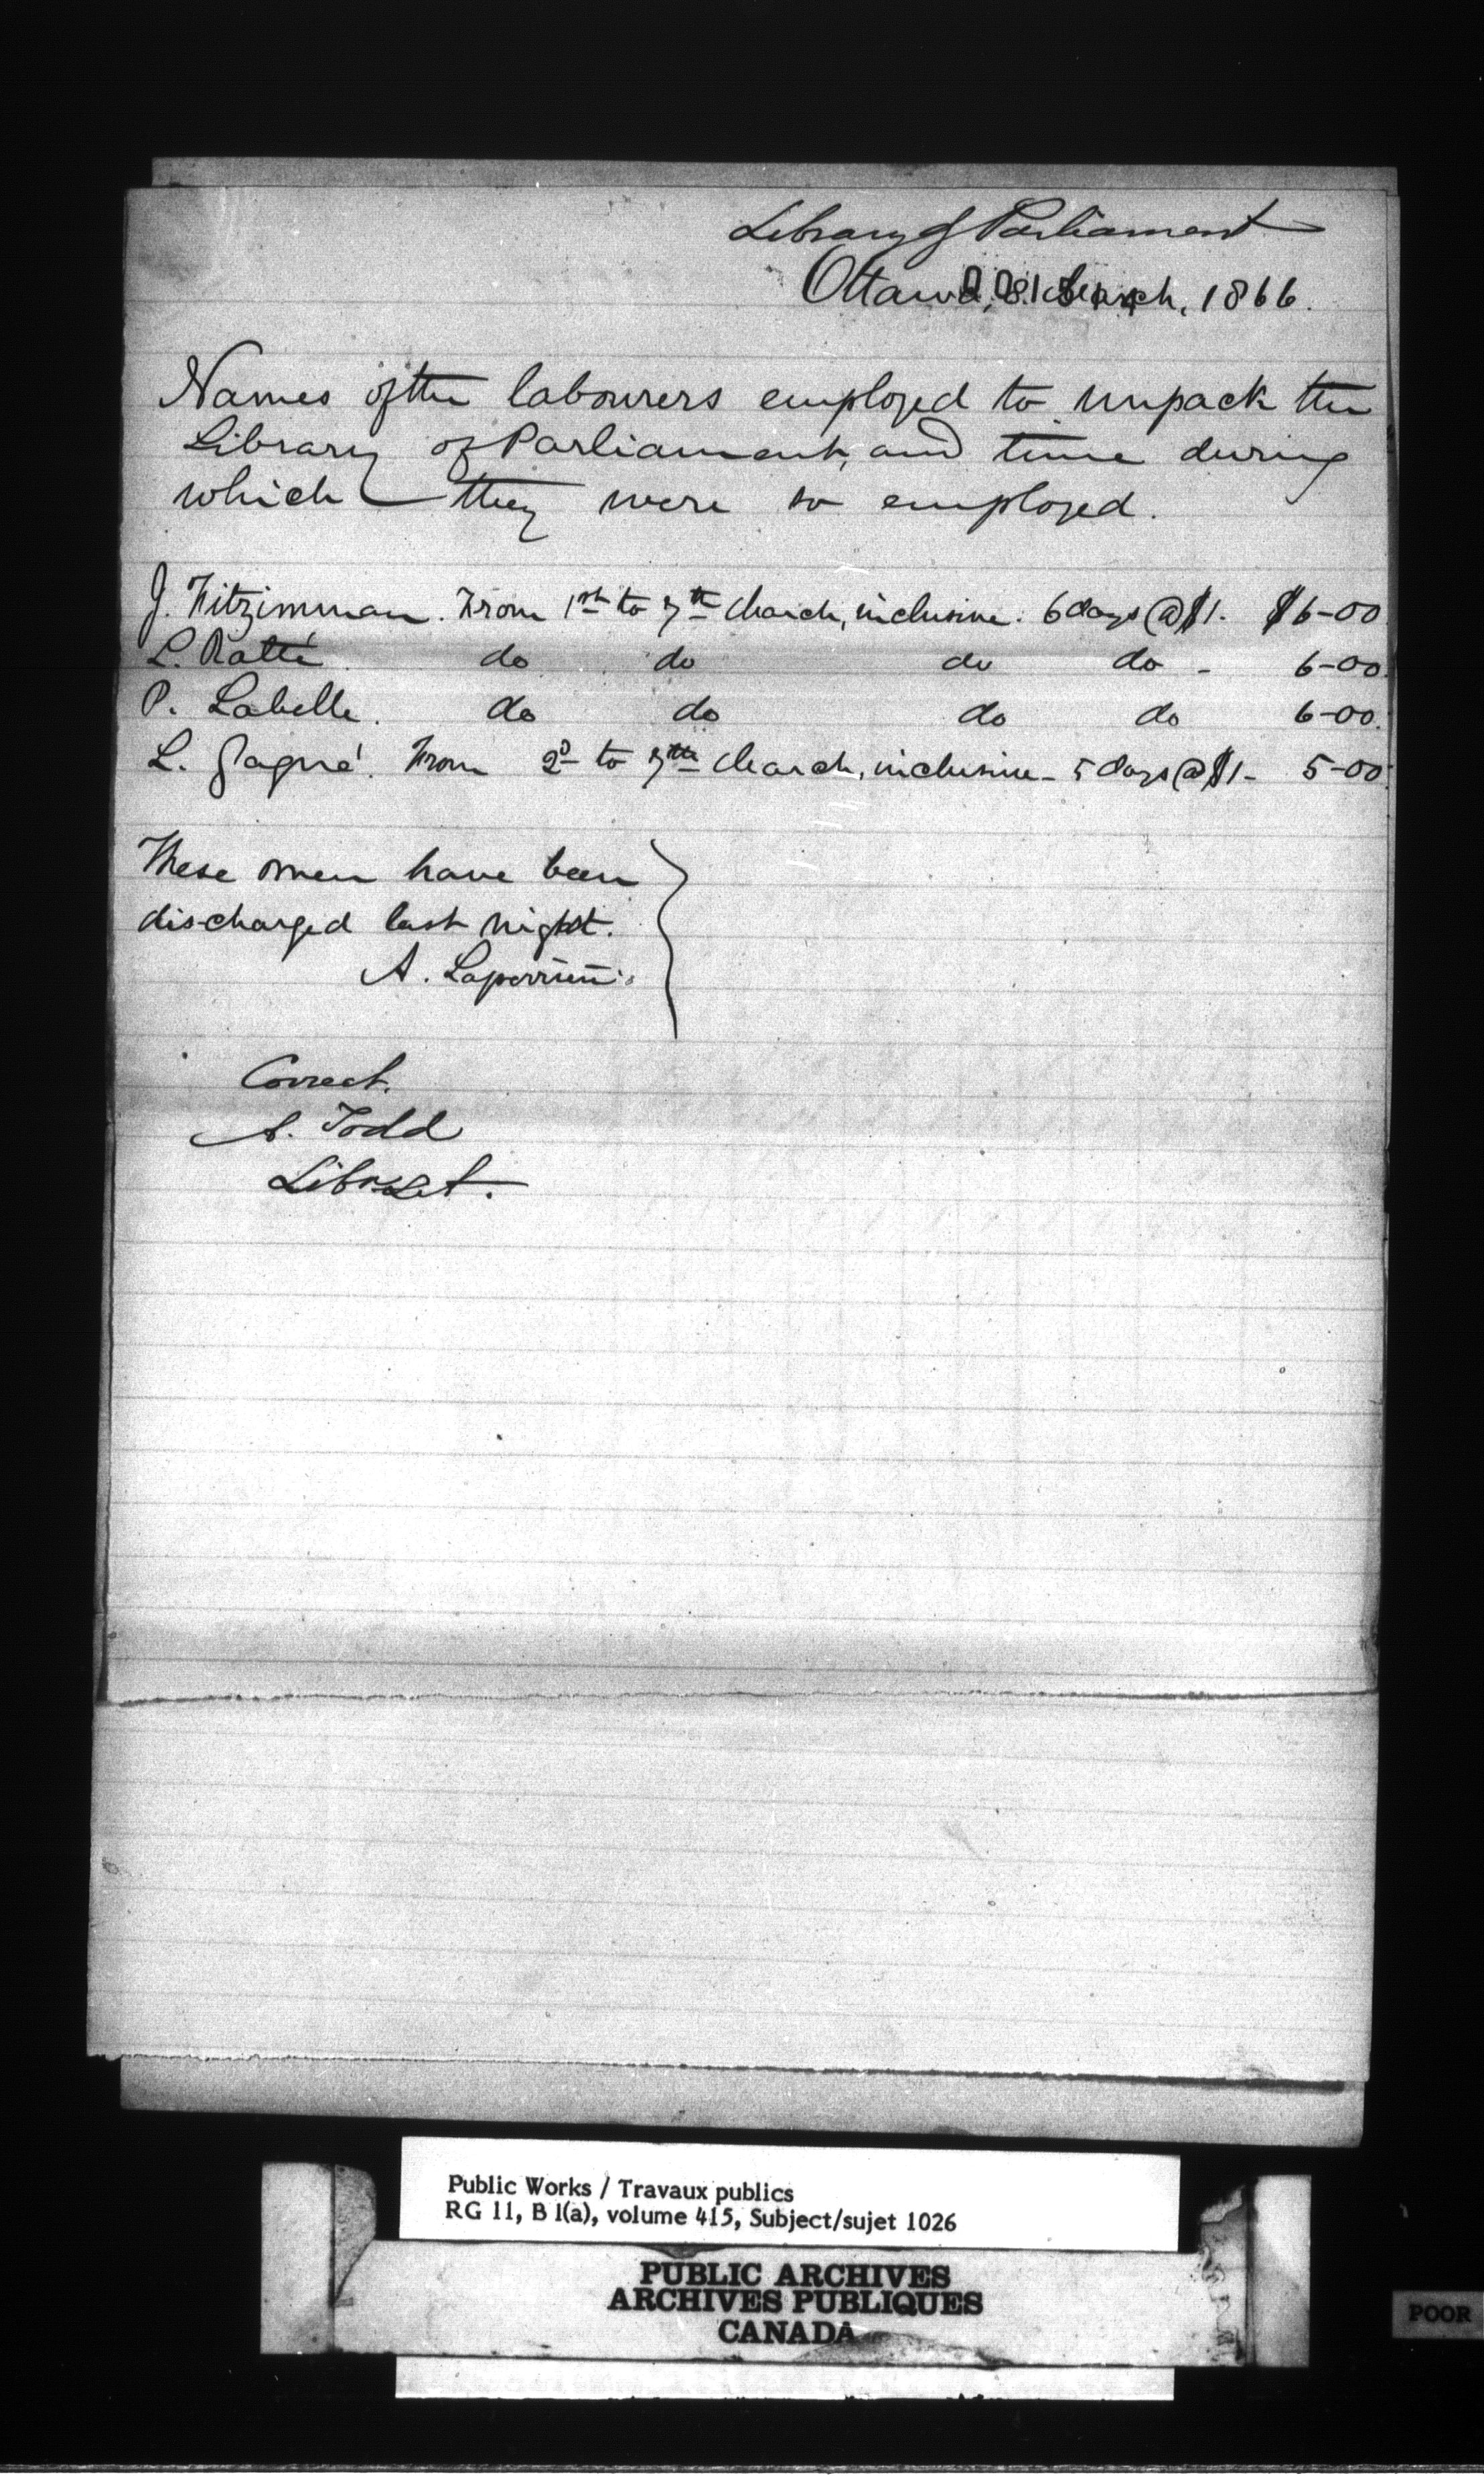 Library of Parliament
Ottawa, 8 March, 1866.
Names of the labourers employed to unpack the
Library of Parliament, and time during
which they were so employed.
J. Fitzimman. From 1st to 7th March, inclusive. 6 days @ $1. $6-00
L. Ratté do do do do - 6-00
P. Labelle. do do do do 6-00.
L. Gagné. From 2d to 7th March, inclusive - 5 days @ $1 - 5-00
These men have been
discharged last night.
A. Laperrière
Correct.
A. Todd
Public Works / Travaux publics
RG 11, B 1(a), volume 415, Subject/sujet 1026
PUBLIC ARCHIVES
ARCHIVES PUBLIQUES
CANADA
POOR